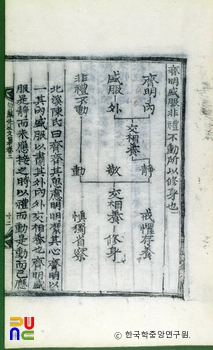 齊明盛服非禮不動所以修身也
齊明內 靜 戒懼存養
交相養 交相養
盛服外 敬 修身
非禮不動 動 愼獨省察
北溪陳氏曰齊齊其思慮明明潔其心齊明以
一其內盛服以肅其外內外交相養也齊明盛
服是靜而未應接之時以禮而動是動而已應
© 한국학중앙연구원.